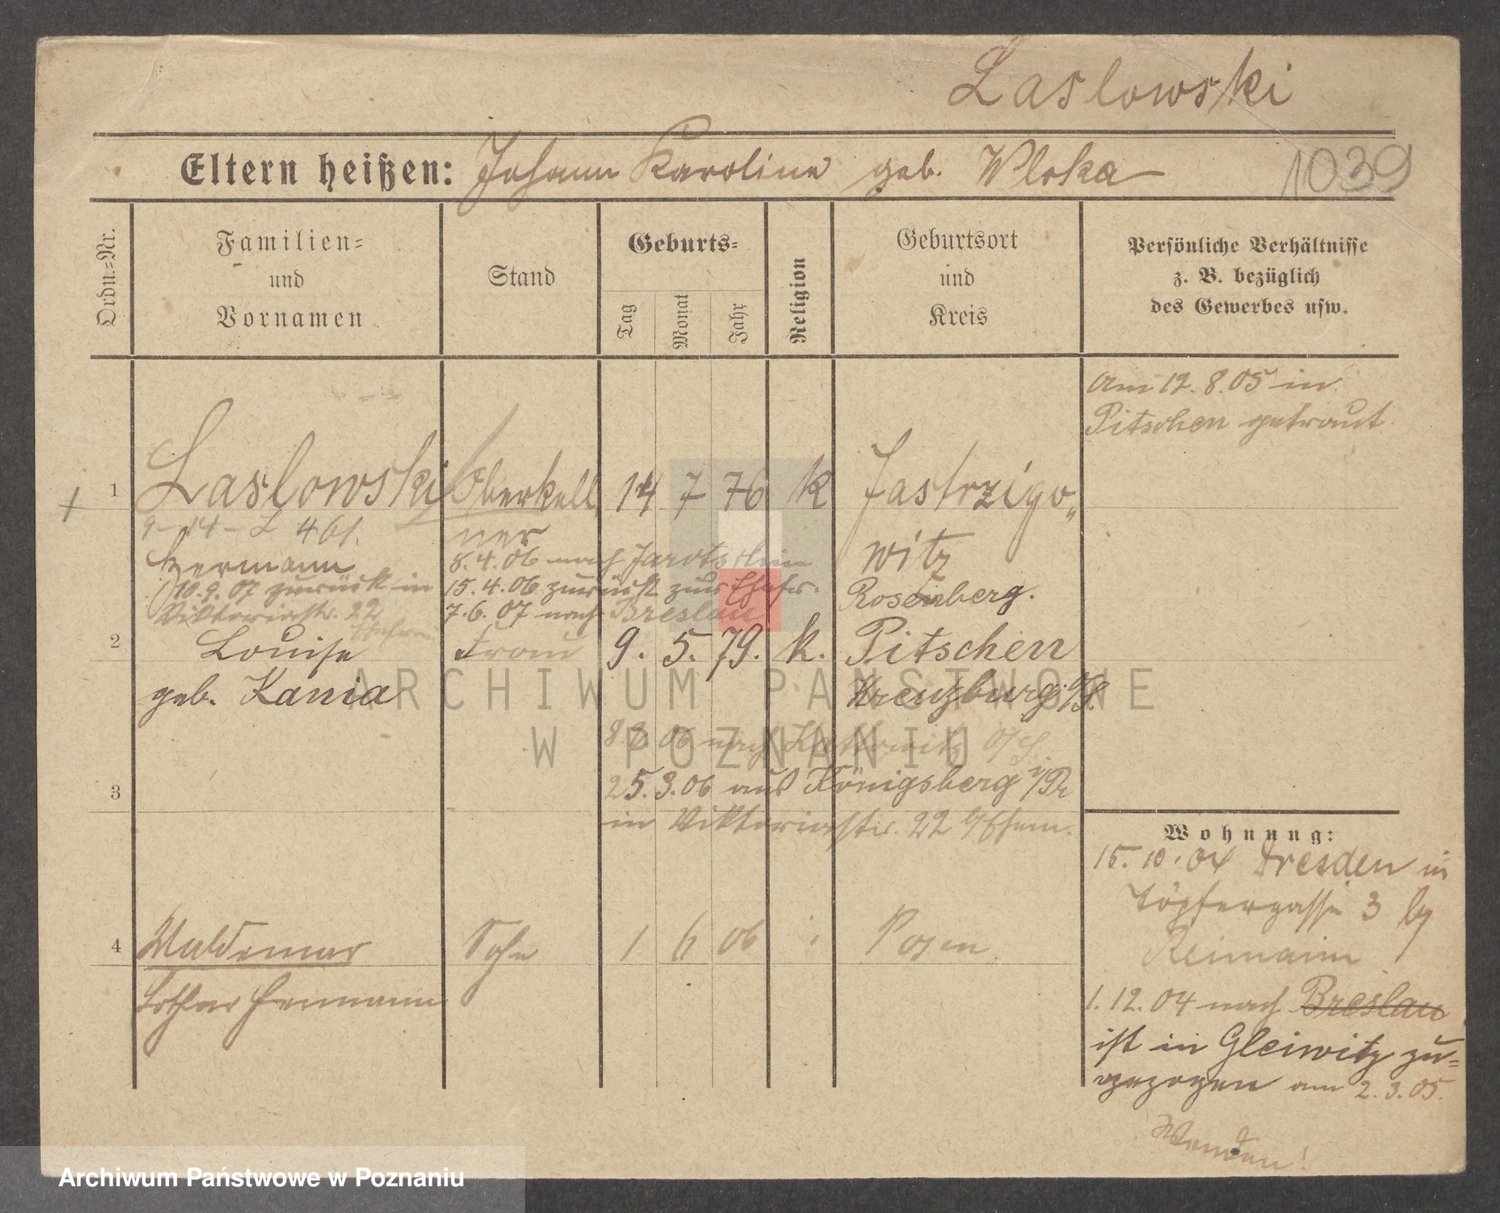 Laslowski
Eltern heißen: Johann Karoline geb. Wloka
1039
Ordn.-Nr.
Familien-
und
Vornamen
Stand
Geburts-
Tag
Monat
Jahr
Religion
Geburtsort
und
Kreis
Persönliche Verhältnisse
z. B. bezüglich
des Gewerbes usw.
Am 12. 8. 05 in
Pitschen getraut
1 Laslowski Oberkell 14 7 76 K Jastrzigo
ner witz
Hermann 8.4.06 nach Jarotschin
10.9.07 zurück in 15.4.06 zurück zur Ehefr. Rosenberg.
Viktoriastr. 22 7.6.07 nach Breslau
2 Louise Frau 9. 5. 79. k. Pitschen
geb. Kania Kreuzburg O/S.
06 nach Kattowitz O/S.
3 25.3.06 aus Königsberg i/Pr
in Viktoriastr. 22
4 Waldemar Sohn 1 6 06 Posen
Lothar Hermann
Wohnung:
15. 10. 04 Dresden in
Töpfergasse 3 by
Reimann
1. 12. 04 nach Breslau
ist in Gleiwitz zu-
gezogen am 2.3.05.
Wenden!
ARCHIWUM PAŃSTWOWE
W POZNANIU
Archiwum Państwowe w Poznaniu